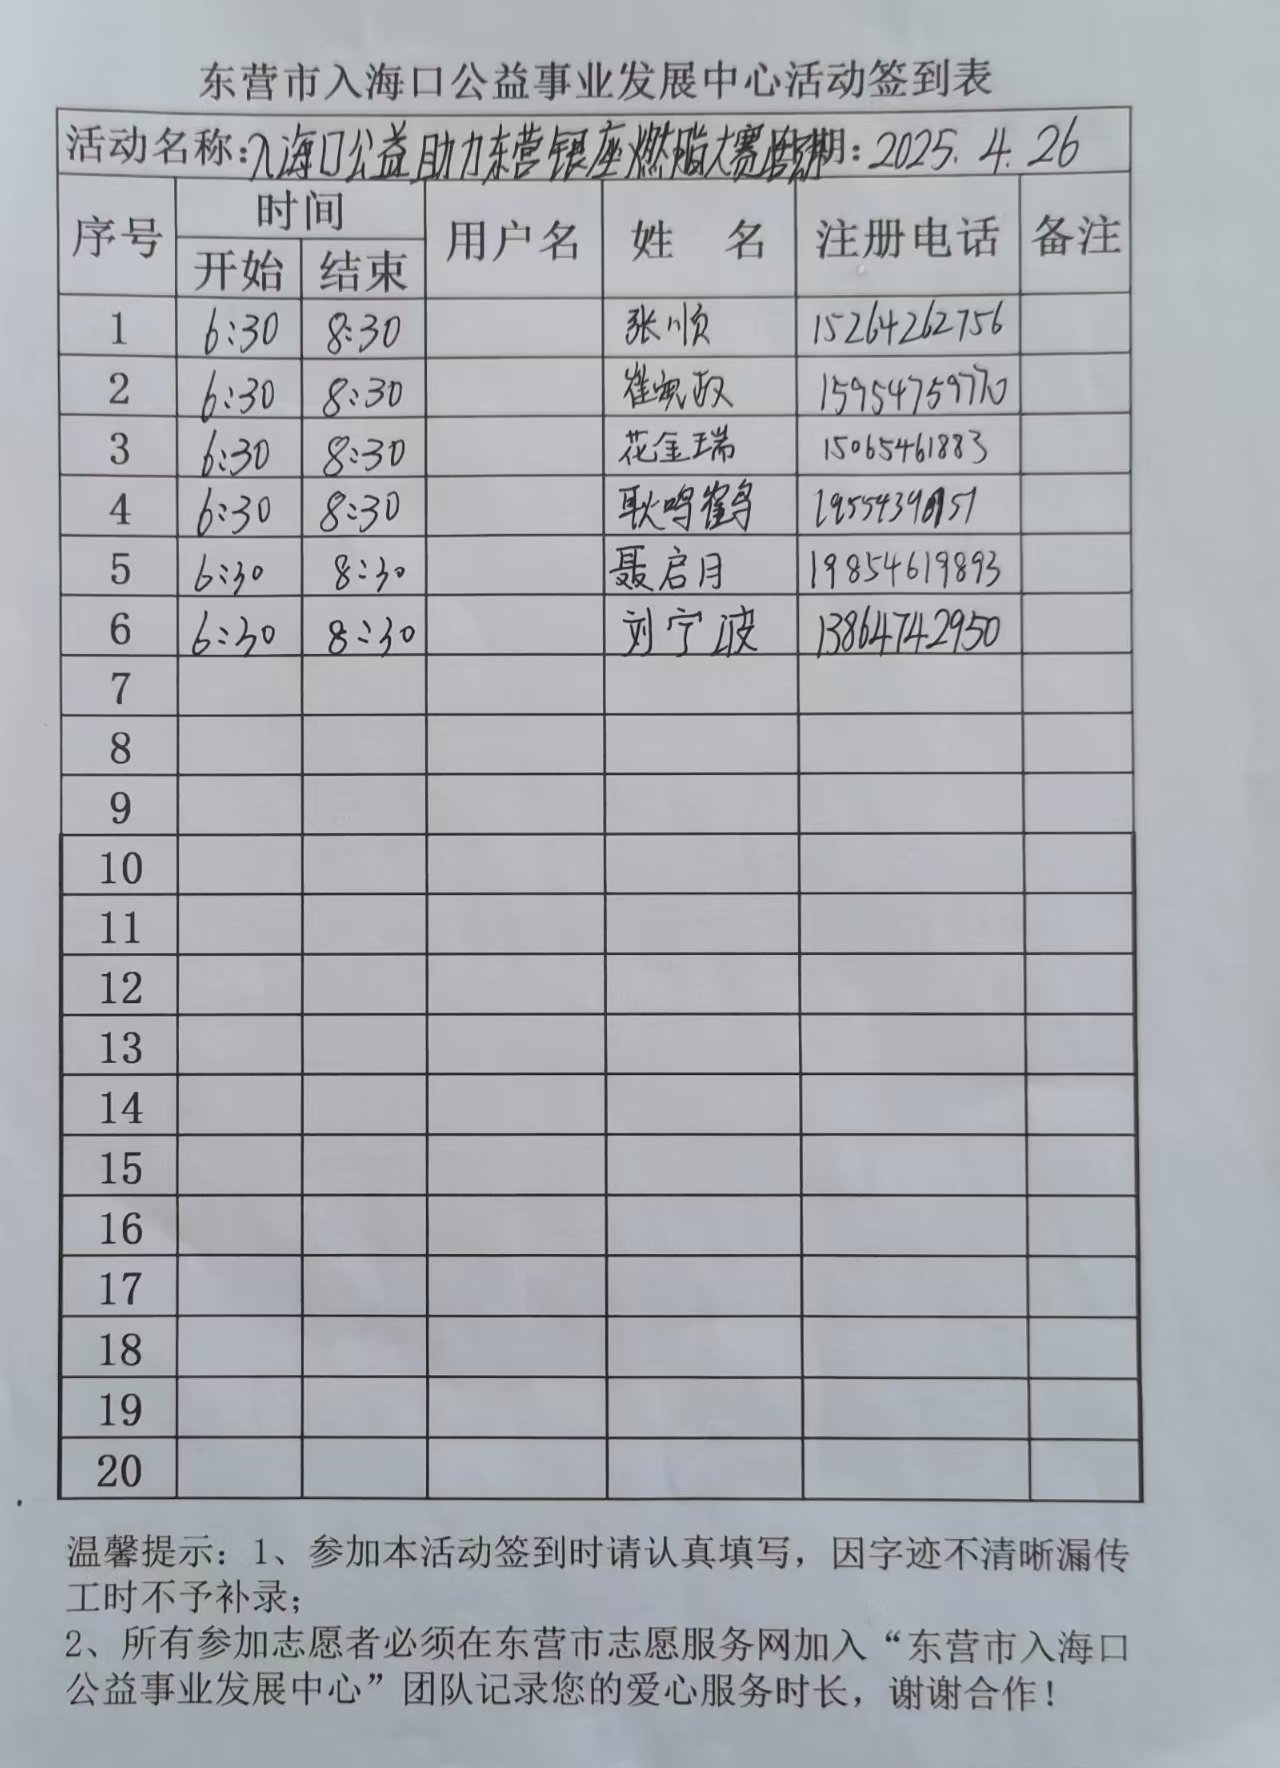 东营市入海口公益事业发展中心活动签到表
活动名称:入海口公益助力东营银座燃脂大赛 期:2025.4.26
序号 时间 用户名 姓 名 注册电话 备注
开始 结束
1 6:30 8:30 张顺 15264262756
2 6:30 8:30 崔 政 15954759770
3 6:30 8:30 花金瑞 15065461883
4 6:30 8:30 耿鸣鹤
5 6:30 8:30 聂启月 19854619893
6 6:30 8:30 刘宁波 13864742950
7
8
9
10
11
12
13
14
15
16
17
18
19
20
温馨提示:1、参加本活动签到时请认真填写，因字迹不清晰漏传
工时不予补录;
2、所有参加志愿者必须在东营市志愿服务网加入“东营市入海口
公益事业发展中心”团队记录您的爱心服务时长，谢谢合作！